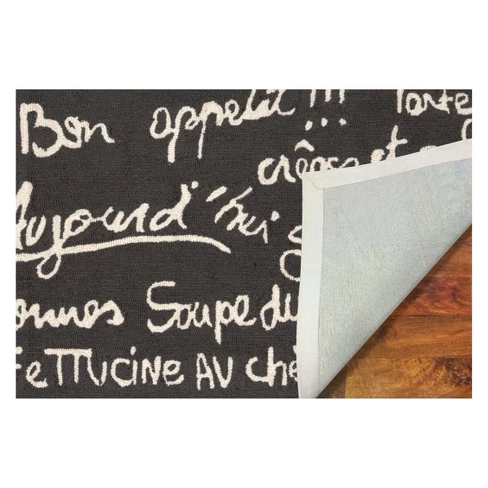 Bon appetit !!! Tarte
crêpes et
Aujourd'hui
onnes Soupe du
FeTTUCINE AU chè